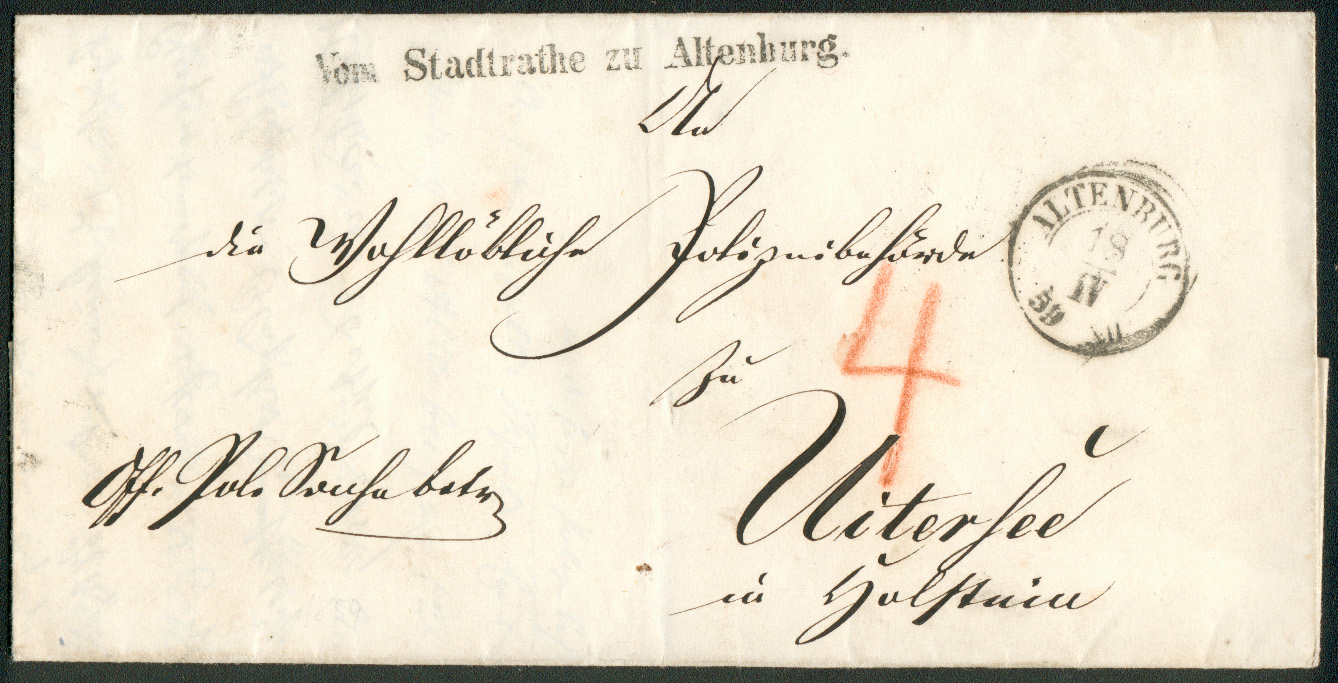 Vom Stadtrathe zu Altenburg.
An
die Wohllöbliche Polizeibehörde
zu
Uitersee
in Holstein
Off. Pol. Sache betr
4
ALTENBURG
18
IV
59
VII